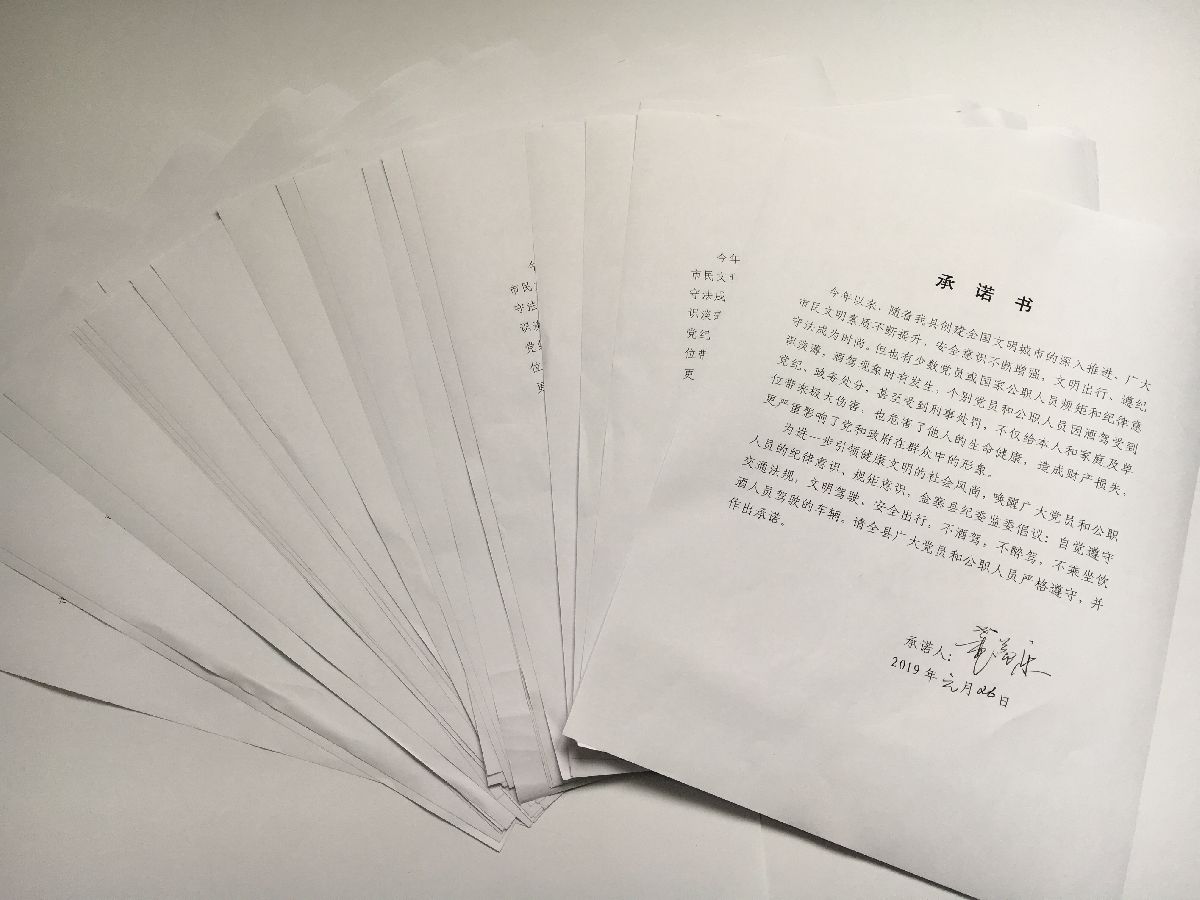 承诺书
今年以来，随着我县创建全国文明城市的深入推进、广大
市民文明素质不断提升，安全意识不断增强，文明出行、遵纪
守法成为时尚。但也有少数党员或国家公职人员规矩和纪律意
识淡薄，酒驾现象时有发生，个别党员和公职人员因酒驾受到
党纪、政务处分，甚至受到刑事处罚，不仅给本人和家庭及单
位带来极大伤害，也危害了他人的生命健康，造成财产损失，
更严重影响了党和政府在群众中的形象。
为进一步引领健康文明的社会风尚，唤醒广大党员和公职
人员的纪律意识、规矩意识，金寨县纪委监委倡议：自觉遵守
交通法规，文明驾驶、安全出行，不酒驾，不醉驾，不乘坐饮
酒人员驾驶的车辆。请全县广大党员和公职人员严格遵守，并
作出承诺。
承诺人：
2019年元月26日
今年
市民文
守法成
识淡
党纪
位带
更
市民
守法
识淡
党
位